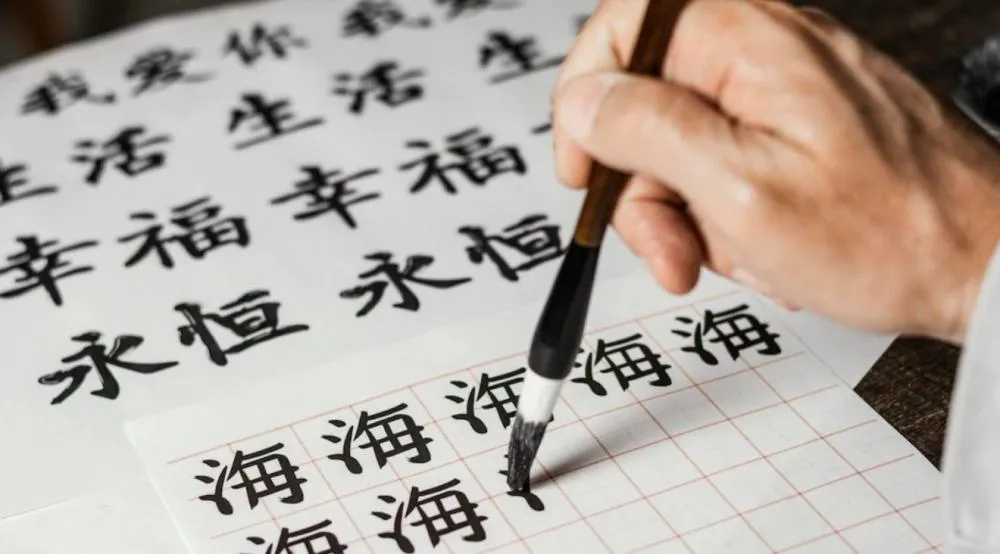 我爱你 我爱
生活 生活 生
幸福 幸福
永恒 永恒
海海海海海
海海